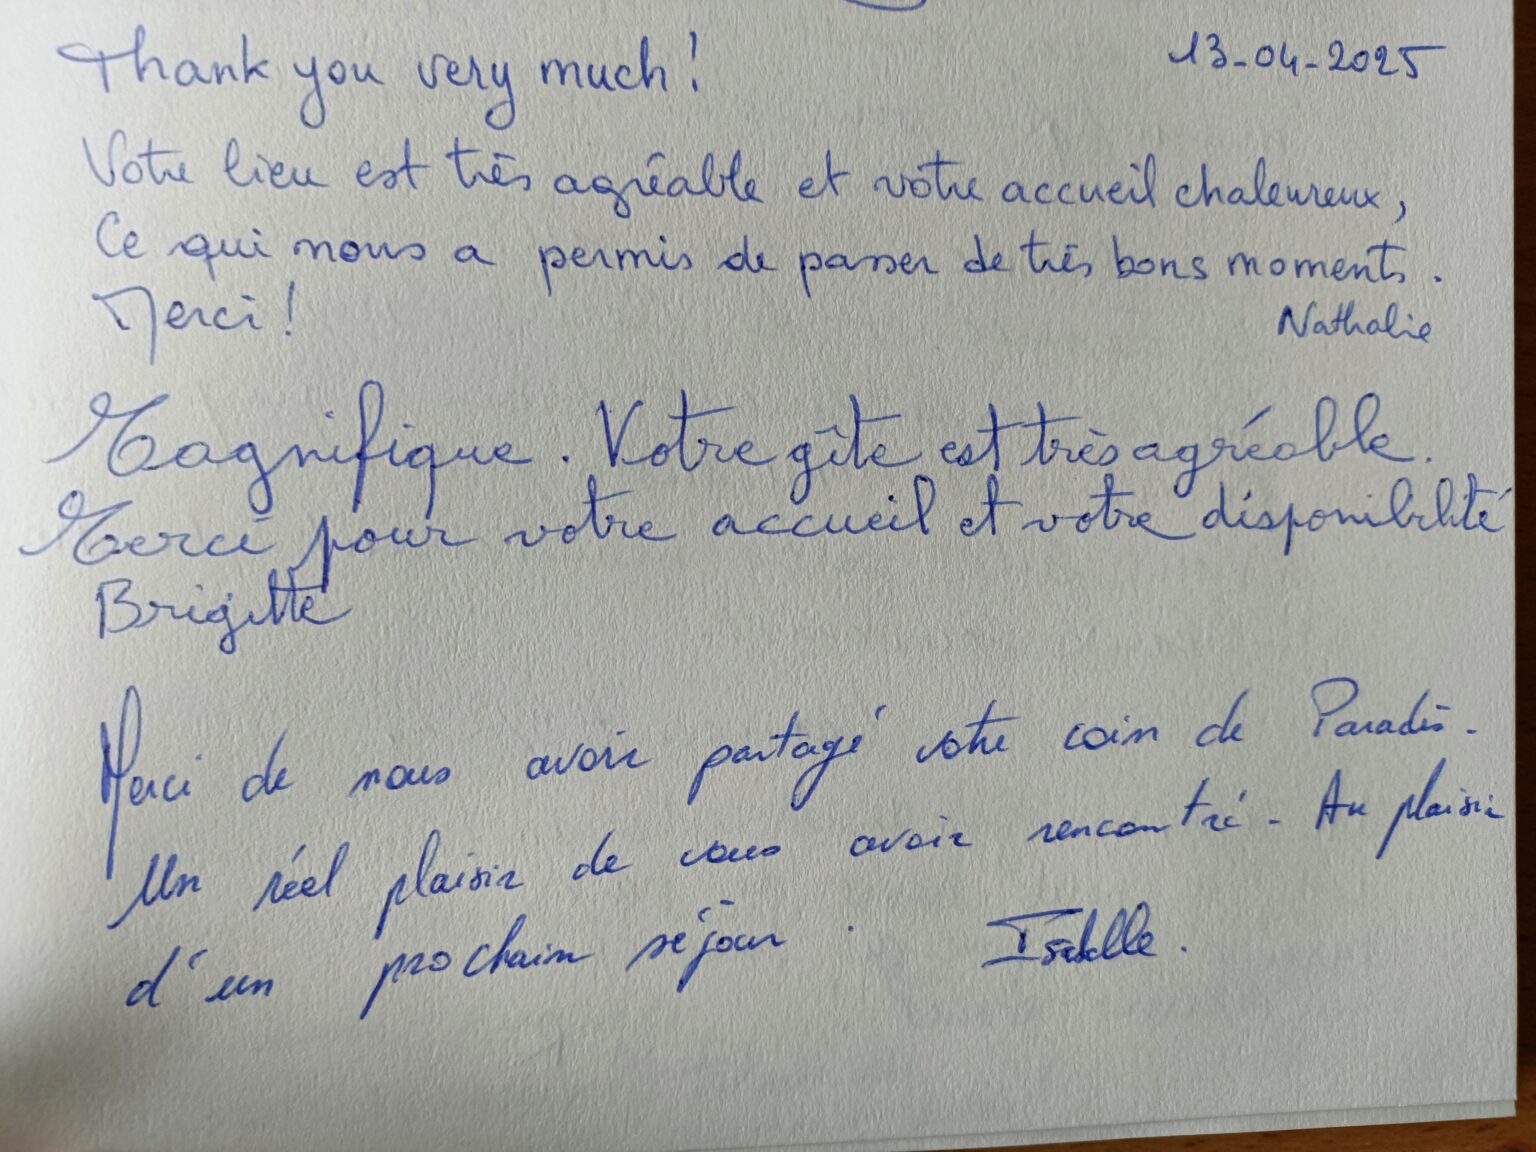 Thank you very much! 13-04-2025
Votre lieu est très agréable et votre accueil chaleureux,
Ce qui nous a permis de passer de très bons moments.
Merci!
Nathalie
Magnifique. Votre gîte est très agréable.
Merci pour votre accueil et votre disponibilité
Brigitte
Merci de nous avoir partagé votre coin de Paradis.
Un réel plaisir de vous avoir rencontré - Au plaisir
d'un prochain séjour. Isabelle.